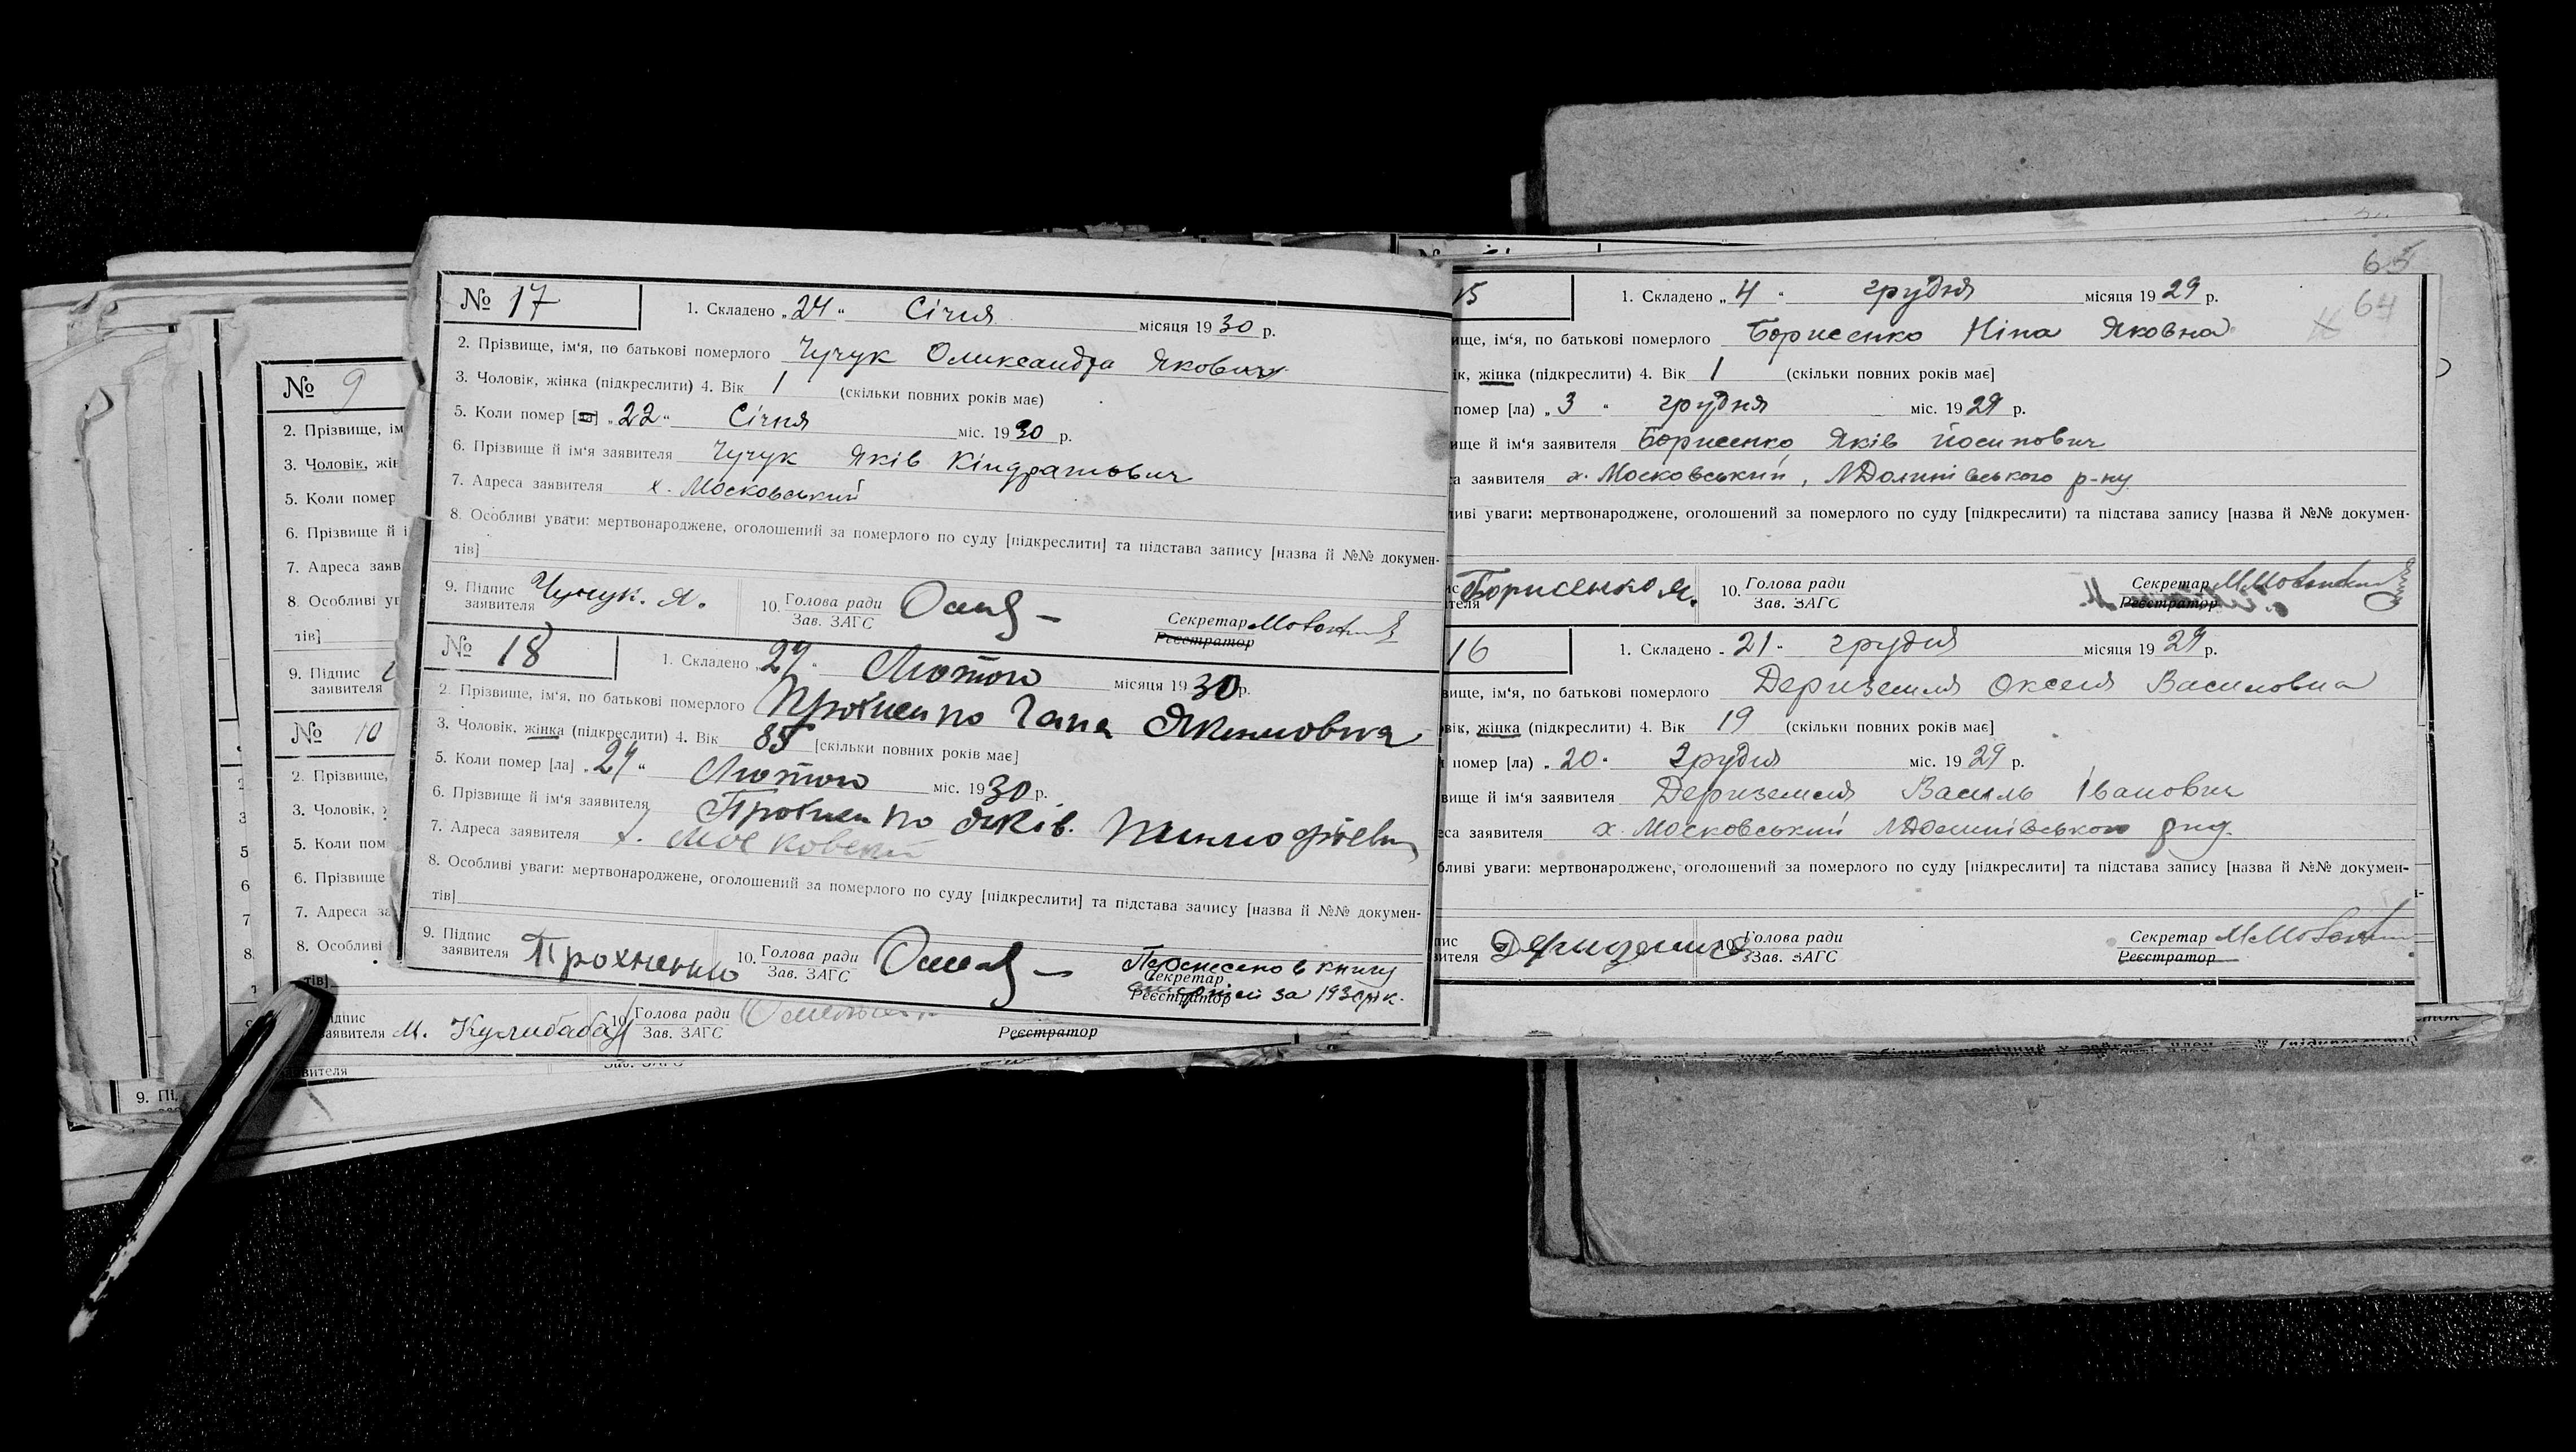 № 17
1. Складено „24“ Січня місяця 1930 р.
2. Прізвище, ім‘я, по батькові померлого Чучук Олександра Якович
3. Чоловік, жінка (підкреслити) 4. Вік 1 (скільки повних років має)
5. Коли помер „22“ Січня міс. 1930 р.
6. Прізвище й ім‘я заявителя Чучук Яків Кіндратович
7. Адреса заявителя х. Московський
8. Особливі уваги: мертвонароджене, оголошений за померлого по суду [підкреслити] та підстава запису [назва й №№ докумен-
тів]
9. Підпис заявителя Чучук. Я. 10. Голова ради Зав. ЗАГС Секретар Реєстратор
№ 18
1. Складено „24“ Лютого місяця 1930 р.
2. Прізвище, ім‘я, по батькові померлого Прохненко Гапа Якимовна
3. Чоловік, жінка (підкреслити) 4. Вік 85 [скільки повних років має]
5. Коли помер [ла] „24“ Лютого міс. 1930 р.
6. Прізвище й ім‘я заявителя Прохненко Яків.
7. Адреса заявителя х. Московський
8. Особливі уваги: мертвонароджене, оголошений за померлого по суду [підкреслити] та підстава запису [назва й №№ докумен-
тів]
9. Підпис заявителя Прохненко 10. Голова ради Зав. ЗАГС Секретар Реєстратор
Перенесено в книгу
за 1930 рік.
15
1. Складено „4“ грудня місяця 1929 р.
ище, ім‘я, по батькові померлого Борисенко Ніна Яковна
ік, жінка (підкреслити) 4. Вік 1 (скільки повних років має]
помер (ла) „3“ грудня міс. 1929 р.
ище й ім‘я заявителя Борисенко Яків Йосипович
а заявителя х. Московський, НДолинівського р-ну
иві уваги: мертвонароджене, оголошений за померлого по суду [підкреслити) та підстава запису [назва й №№ докумен-
Борисенко Я. 10. Голова ради Зав. ЗАГС Секретар Реєстратор
16
1. Складено „21“ грудня місяця 1929 р.
вище, ім‘я, по батькові померлого Дериземля Оксеня Василовна
вік, жінка (підкреслити) 4. Вік 19 (скільки повних років має]
помер [ла) „20“ Грудня міс. 1929 р.
вище й ім‘я заявителя Дериземля Василь Іванович
еса заявителя х. Московський НДолинівського
бливі уваги: мертвонароджене, оголошений за померлого по суду [підкреслити] та підстава запису [назва й №№ докумен-
Дериземля 10. Голова ради Зав. ЗАГС Секретар Реєстратор
65
64
№ 9
2. Прізвище, ім
3. Чоловік, жін
5. Коли помер
6. Прізвище й і
7. Адреса заяв
8. Особливі ув
тів]
9. Підпис
заявителя
№ 10
2. Прізвище,
3. Чоловік,
5. Коли пом
6. Прізвище
7. Адреса за
8. Особливі
тів]
заявителя М. Кулибаба 10. Голова ради Зав. ЗАГС Реєстратор